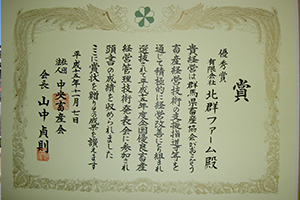 優秀賞
賞
有限会社
北群ファーム殿
貴経営は群馬県畜産協会がおこなう
畜産経営技術の支援指導等を
通して積極的に経営改善にとり組まれ
選抜されて平成十五年度全国優良畜産
経営管理技術発表会に参加され
顕著の成績を收められました
ここに賞状を贈りその成果を讃えます
平成十五年十一月七日
社団法人 中央畜産会
会長 山中貞則